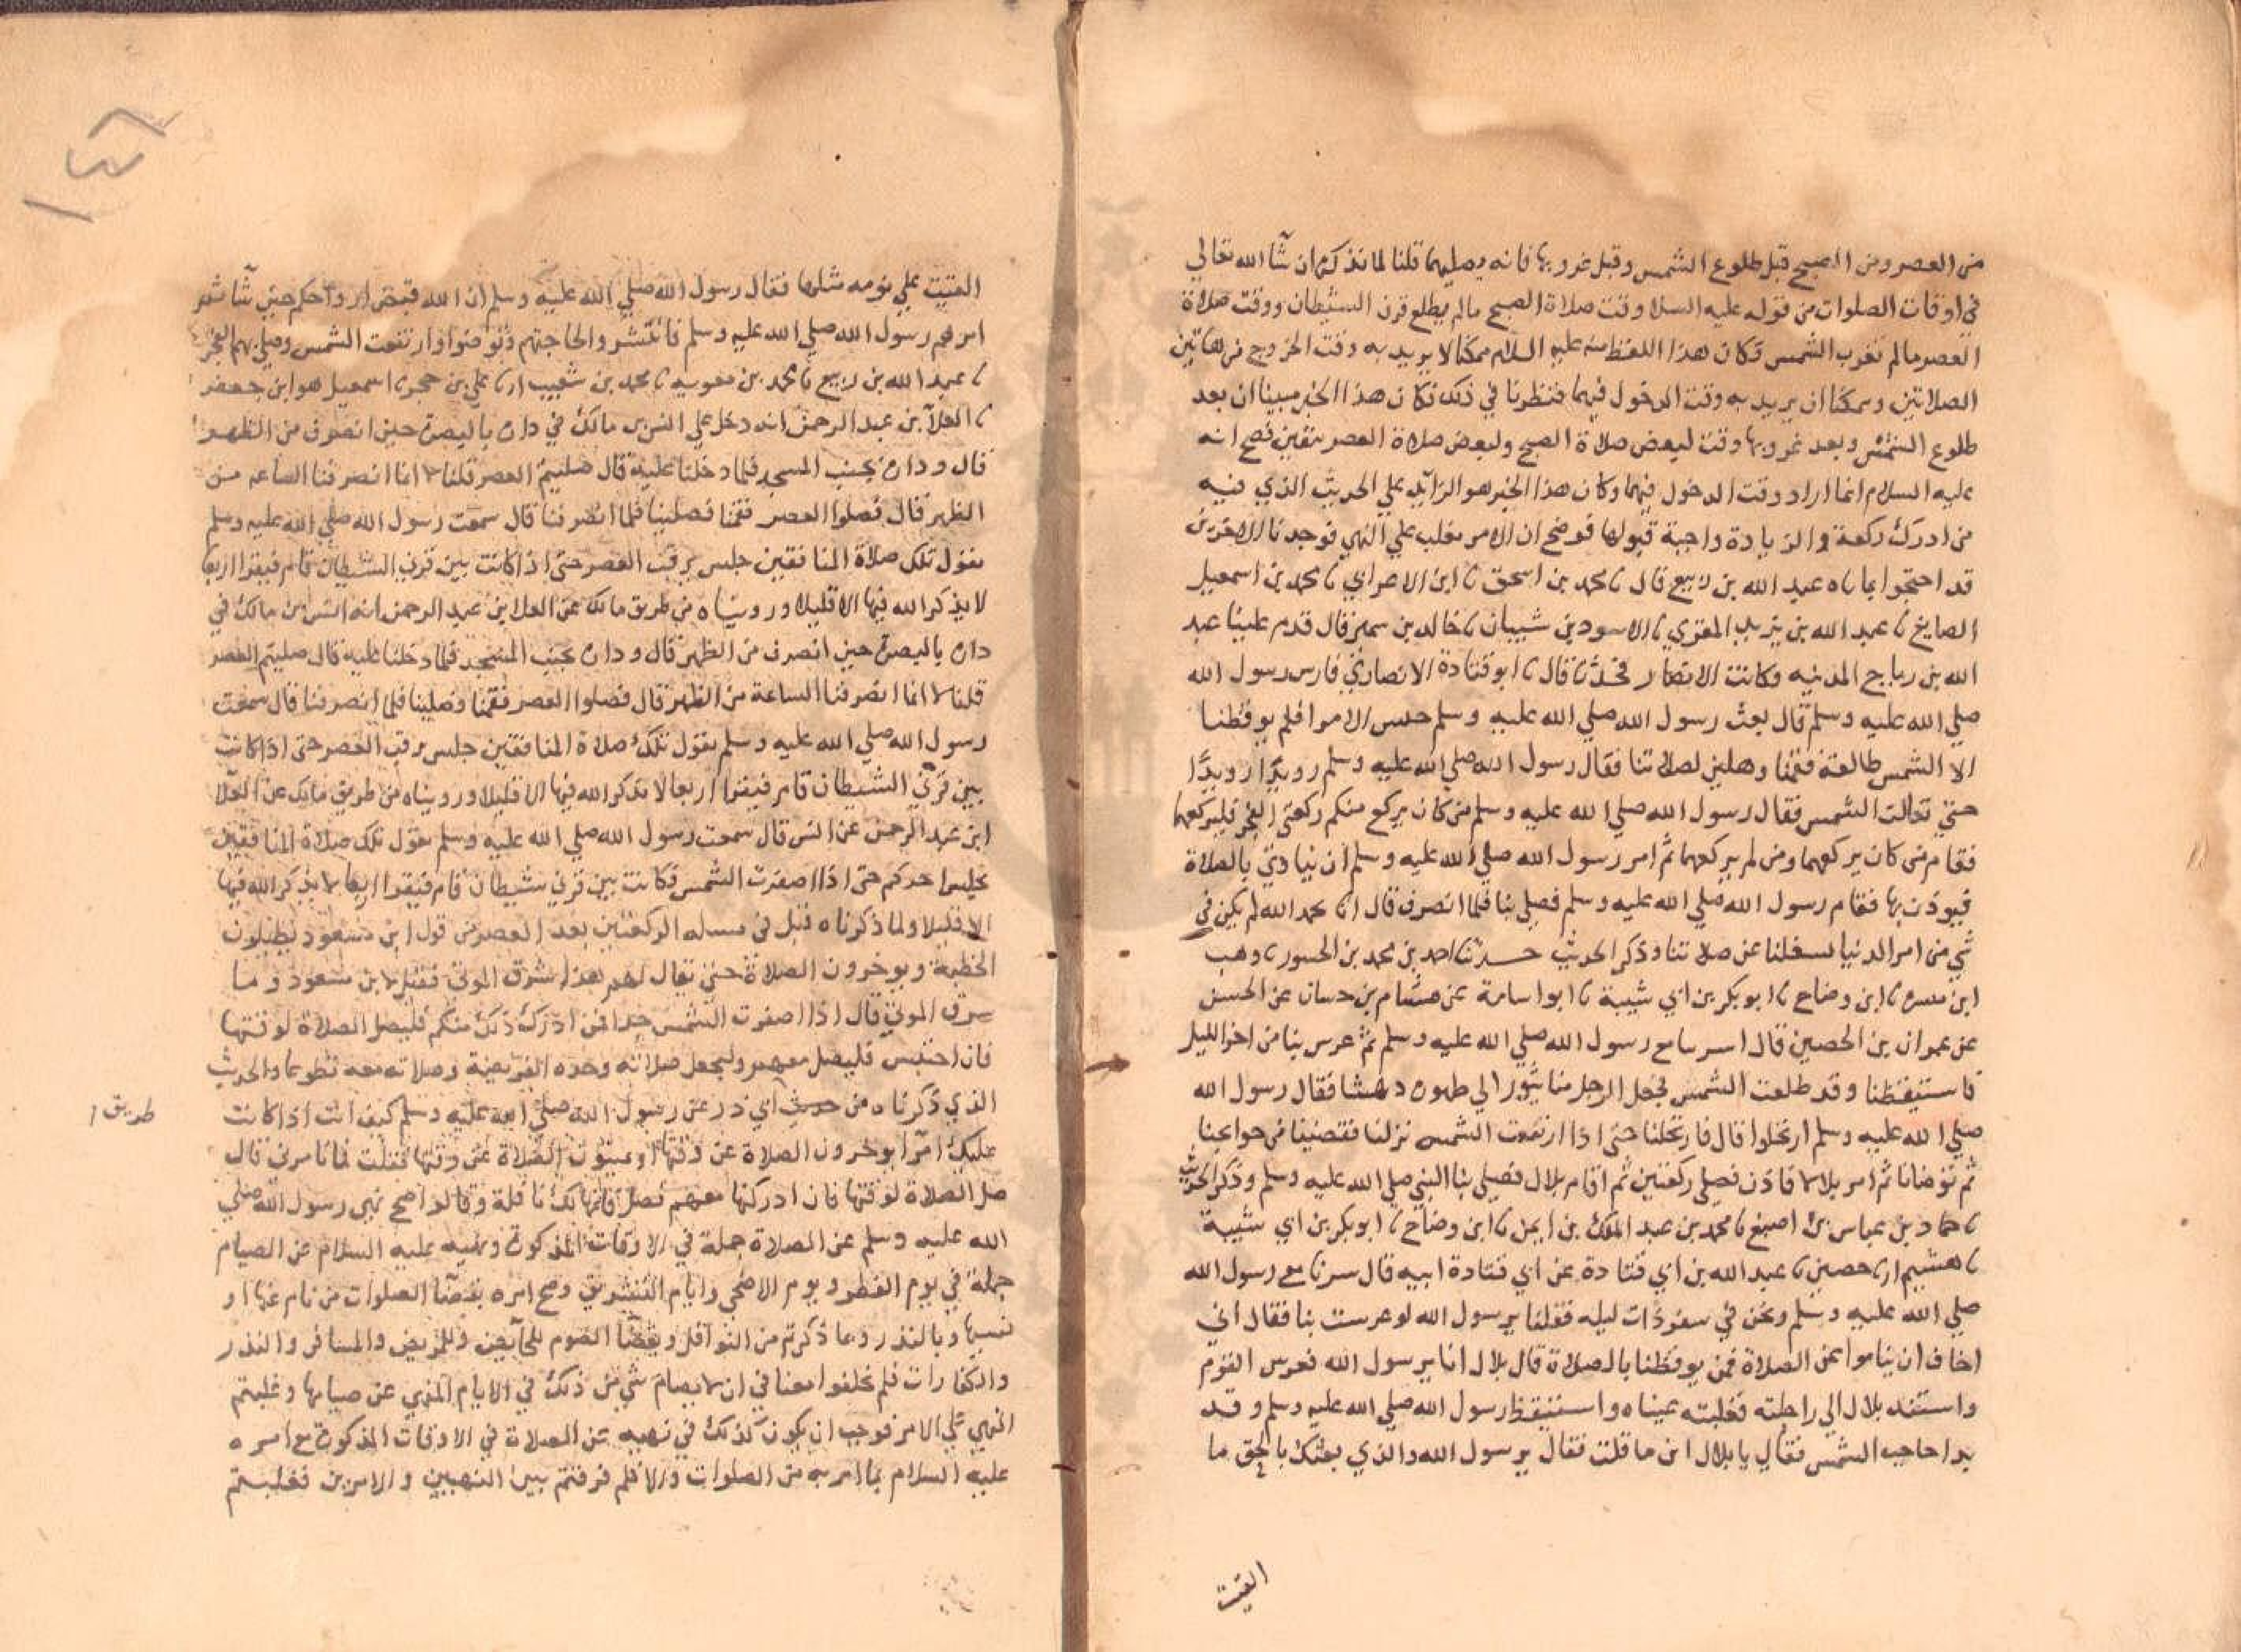 من العصر ومن الصبح قبل طلوع الشمس وقبل غروبها فانه يصليهما قلنا لما نذكره ان شآ الله تعالي
في اوقات الصلوات من قوله عليه السلام وقت صلاة الصبح مالم يطلع قرن الشيطان ووقت صلاة
العصر مالم تغرب الشمس فكان هذا اللفظ منه عليه السلام ممكنا لا يريد به وقت الخروج من هاتين
الصلاتين وممكنا ان يريد به وقت الدخول فيهما فنظرنا في ذلك فكان هذا الخبر مبينا ان بعد
طلوع الشمس وبعد غروبها وقت لبعض صلاة الصبح ولبعض صلاة العصر بيقين فصح انه
عليه السلام انما اراد وقت الدخول فيهما وكان هذا الخبر هو الزائد علي الحديث الذي فيه
من ادرك ركعة والزيادة واجبة قبولها فوضح ان الامر مغلب علي النهي فوجدنا الاخرين
قد احتجوا بما ناه عبد الله بن ربيع قال نا محمد بن اسحق نا ابن الاعرابي نا محمد بن اسمعيل
الصايغ نا عبد الله بن يزيد المقري نا الاسود بن شيبان نا خالد بن سمير قال قدم علينا عبد
الله بن رباح المدنيه وكانت الانصار تفقهه قال نا ابو قتادة الانصاري فارس رسول الله
صلي الله عليه وسلم قال بعث رسول الله صلي الله عليه وسلم جيش الامرا فلم يوقظنا
الا الشمس طالعة فقمنا وهلين لصلاتنا فقال رسول الله صلي الله عليه وسلم رويدا رويدا
حتي تعالت الشمس فقال رسول الله صلي الله عليه وسلم من كان يركع منكم ركعتي الفجر فليركعهما
فقام من كان يركعهما ومن لم يركعهما ثم امر رسول الله صلي الله عليه وسلم ان ينادي بالصلاة
فيوذن بها فقام رسول الله صلي الله عليه وسلم فصلي بنا فلما انصرف قال انا نحمد الله لم نكن في
شي من امر الدنيا يشغلنا عن صلاتنا وذكر الحديث حدثنا احمد بن محمد بن الجسور نا وهب
ابن مسره نا ابن وضاح نا ابو بكر بن ابي شيبة نا ابو اسامة عن هشام بن حسان عن الحسن
عن عمران بن الحصين قال اسرينا مع رسول الله صلي الله عليه وسلم ثم عرس بنا من اخر الليل
فاستيقظنا وقد طلعت الشمس فجعل الرجل منا يثور الي طهوره دهشا فقال رسول الله
صلي الله عليه وسلم ارتحلوا قال فارتحلنا حتي اذا ارتفعت الشمس نزلنا فقضينا من حوايجنا
ثم توضانا ثم امر بلالا فاذن فصلي ركعتين ثم اقام بلال فصلي بنا النبي صلي الله عليه وسلم وذكر الحديث
نا حماد بن عباس بن اصبغ نا محمد بن عبد الملك بن ايمن نا ابن وضاح نا ابو بكر بن ابي شيبة
نا هشيم انا حصين نا عبد الله بن ابي قتادة عن ابي قتادة ابيه قال سرنا مع رسول الله
صلي الله عليه وسلم ونحن في سفر ذات ليله فقلنا يرسول الله لو عرست بنا فقال اني
اخاف ان يناموا عن الصلاة فمن يوقظنا بالصلاة قال بلال انا يرسول الله فعرس القوم
واستند بلال الي راحلته فغلبته عيناه واستيقظ رسول الله صلي الله عليه وسلم وقد
بدا حاجب الشمس فقال يا بلال اين ما قلت فقال يرسول الله والذي بعثك بالحق ما
القيت
القيت علي نومه مثلها فقال رسول الله صلي الله عليه وسلم ان الله قبض ارواحكم حين شآ ثم
امرهم رسول الله صلي الله عليه وسلم فانتشروا لحاجتهم وتوضوا وارتفعت الشمس وصلي بهم الفجر
نا عبد الله بن ربيع نا محمد بن معويه نا محمد بن شعيب انا علي بن حجر نا اسمعيل هو ابن جعفر
نا العلآ بن عبد الرحمن انه دخل علي انس بن مالك في داره بالبصرة حين انصرف من الظهر
قال وداره بجنب المسجد فلما دخلنا عليه قال صليتم العصر قلنا لا انما انصرفنا الساعه من
الظهر قال فصلوا العصر فقمنا فصلينا فلما انصرفنا قال سمعت رسول الله صلي الله عليه وسلم
يقول تلك صلاة المنافقين جلس يرقب العصر حتي اذا كانت بين قرني الشيطان قام فنقرا اربعا
لا يذكر الله فيها الا قليلا ورويناه من طريق مالك عن العلا بن عبد الرحمن انه انس بن مالك في
داره بالبصرة حين انصرف من الظهر قال وداره بجنب المسجد فلما دخلنا عليه قال صليتم العصر
قلنا لا انما انصرفنا الساعة من الظهر قال فصلوا العصر فقمنا وصلينا فلما انصرفنا قال سمعت
رسول الله صلي الله عليه وسلم يقول تلك صلاة المنافقين جلس يرقب العصر حتي اذا كانت
بين قرني الشيطان قام فنقرا اربعا لا يذكر الله فيها الا قليلا ورويناه من طريق مالك عن العلآ
ابن عبد الرحمن عن انس قال سمعت رسول الله صلي الله عليه وسلم يقول تلك صلاة المنافقين
يجلس احدكم حتي اذا اصفرت الشمس فكانت بين قرني شيطان قام فنقرا اربعا لا يذكر الله فيها
الا قليلا ولما ذكرناه قبل في مساله الركعتين بعد العصر من قول ابن مسعود يطيلون
الخطبة ويوخرون الصلاة حتي يقال لهم هذا شرق الموتي فقيل لابن مسعود وما
شرق الموتي قال اذا اصفرت الشمس جدا فمن ادرك ذلك منكم فليصل الصلاة لوقتها
فان احتبس فليصل معهم وليجعل صلاته وحده الفريضة وصلاته معه تطوعا والحديث
الذي ذكرناه من حديث ابي ذر عن رسول الله صلي الله عليه وسلم كيف انت اذا كانت
طريق
عليك امرا يوخرون الصلاة عن وقتها او يميتون الصلاة عن وقتها فقلت فما تامرني قال
صل الصلاة لوقتها فان ادركتها معهم فصل فانها لك نافلة وقالوا صح نهي رسول الله صلي
الله عليه وسلم عن الصلاة جملة في الاوقات المذكورة ونهيه عليه السلام عن الصيام
جملة في يوم الفطر ويوم الاضحي وايام التشريق وصح امره بقضآ الصلوات من نام عنها او
نسيها وبالنذر وما ذكرتم من النوافل وبقضآ الصوم للحآيض وللمريض والمسافر والنذر
والكفارات فلم تخلفوا معنا في ان لا يصام شي من ذلك في الايام المنهي عن صيامها وغلبتم
النهي علي الامر فوجب ان يكون كذلك في نهيه عن الصلاة في الاوقات المذكورة مع امره
عليه السلام بما امر به من الصلوات والا فلم فرقتم بين النهيين والامرين فغلبتم